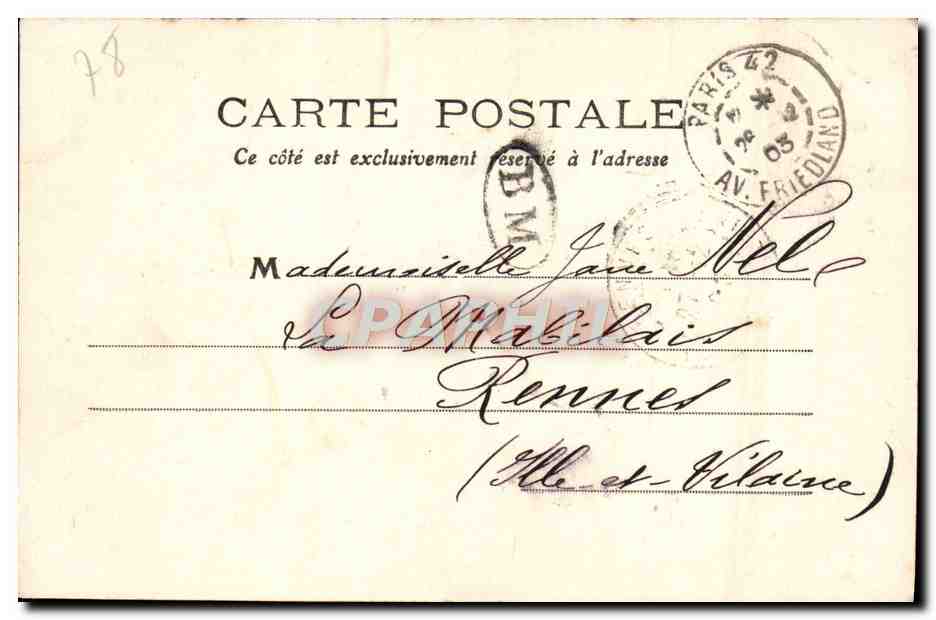 78
CARTE POSTALE
Ce côté est exclusivement réservé à l'adresse
PARIS 42
03
AV. FRIEDLAND
BM
Mademoiselle Jane Nel
La Mabilais
CPAPHIL
Rennes
(Ille-et-Vilaine)